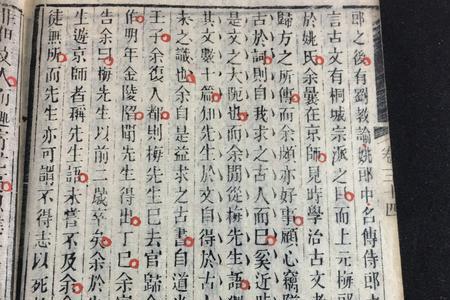 卷三
郎之後有劉敎諭姚郎中名傳侍郎
言古文有桐城宗派之目而上元梅郎
於姚氏余曩在京師見時學治古文者
歸方之所傳而余頗亦好事顧心竊
古於詞則自我求之古人而已矣近時
是文之大厄也而余閒從梅先生語
其文數十篇知先生於文自得於古人
未之識也余自是益求之古書自道
壬子余復入都則梅先生已去官歸
作明年金陵陷聞先生得出丁巳余
告余曰梅先生以前二歲卒矣余於
生遊京師者稱先生語未嘗不及余
徒無所而先生亦可謂不得志以死